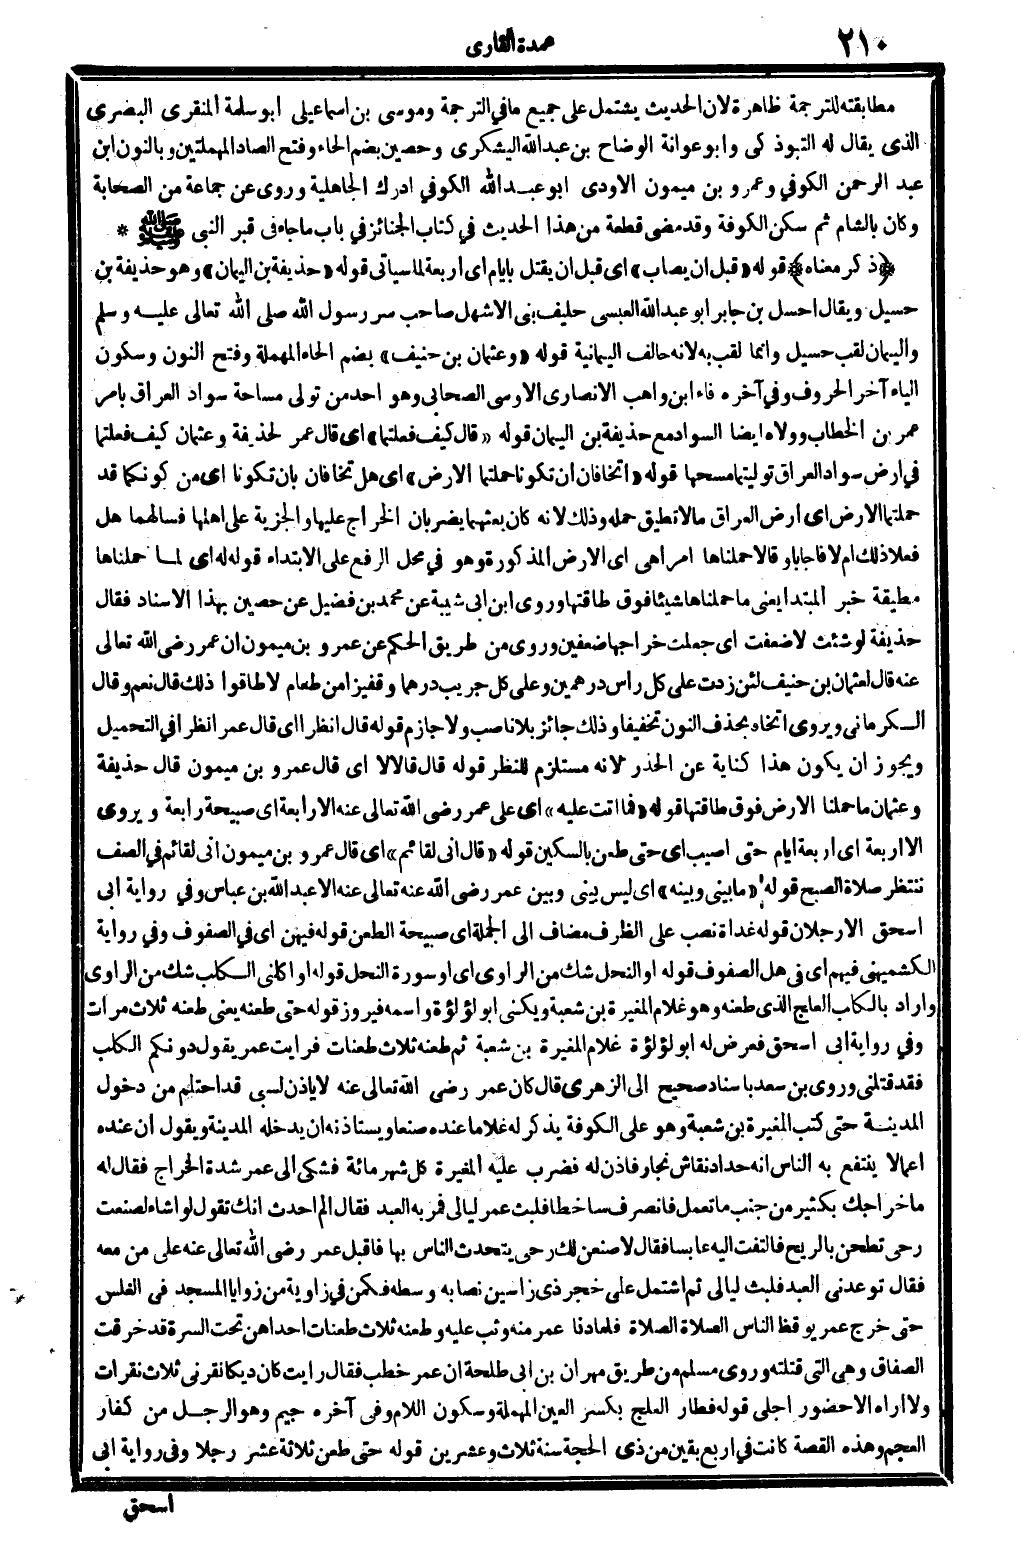 ٢١٠
عمدة القارى
مطابقته للترجمة ظاهرة لان الحديث يشتمل على جميع ما في الترجمة وموسى بن اسماعيلى ابو سلمة المنقرى البصرى
الذى يقال له التبوذكى وابو عوانة الوضاح بن عبد الله اليشكرى وحصين بضم الحاء وفتح الصاد المهملتين وبالنون ابن
عبد الرحمن الكوفي وعمرو بن ميمون الاودى ابو عبد الله الكوفي ادرك الجاهلية وروى عن جماعة من الصحابة
وكان بالشام ثم سكن الكوفة وقد مضى قطعة من هذا الحديث في كتاب الجنائز في باب ما جاء فى قبر النبى ﷺ *
﴿ذكر معناه﴾ قوله «قبل ان يصاب» اى قبل ان يقتل بايام اى اربعة لما سياتى قوله «حذيفة بن اليمان» وهو حذيفة بن
حسيل ويقال احسل بن جابر ابو عبد الله العبسى حليف بنى الاشهل صاحب سر رسول الله صلى الله تعالى عليه وسلم
واليمان لقب حسيل وانما لقب به لانه حالف اليمانية قوله «وعثمان بن حنيف» بضم الحاء المهملة وفتح النون وسكون
الياء آخر الحروف وفي آخره فاء ابن واهب الانصارى الاوسى الصحابى وهو احد من تولى مساحة سواد العراق بامر
عمر بن الخطاب وولاه ايضا السواد مع حذيفة بن اليمان قوله «قال كيف فعلتما» اى قال عمر لحذيفة وعثمان كيف فعلتما
في ارض سواد العراق توليتما مسحها قوله «اتخافان ان تكونا حملتما الارض» اى هل تخافان بان تكونا اى من كونكما قد
حملتما الارض اى ارض العراق مالا تطيق حمله وذلك لانه كان بعثهما يضربان الخراج عليها والجزية على اهلها فسالهما هل
فعلا ذلك ام لا فاجابا وقالا حملناها امرا هى اى الارض المذكورة وهو في محل الرفع على الابتداء قوله له اى لما حملناها
مطيقة خبر المبتدا يعنى ما حملناها شيئا فوق طاقتها وروى ابن ابى شيبة عن محمد بن فضيل عن حصين بهذا الاسناد فقال
حذيفة لو شئت لاضعفت اى جعلت خراجها ضعفين وروى من طريق الحكم عن عمرو بن ميمون ان عمر رضى الله تعالى
عنه قال لعثمان بن حنيف لئن زدت على كل راس درهمين وعلى كل جريب درهما وقفيزا من طعام لاطاقوا ذلك قال نعم وقال
الكرمانى ويروى اتخاه بحذف النون تخفيفا وذلك جائز بلا ناصب ولا جازم قوله قال انظرا اى قال عمر انظرا في التحميل
ويجوز ان يكون هذا كناية عن الحذر لانه مستلزم للنظر قوله قال قالا لا اى قال عمرو بن ميمون قال حذيفة
وعثمان ما حملنا الارض فوق طاقتها قوله «فما اتت عليه» اى على عمر رضى الله تعالى عنه الا رابعة اى صبيحة رابعة ويروى
الا اربعة اى اربعة ايام حتى اصيب اى حتى طعن بالسكين قوله «قال انى لقائم» اى قال عمرو بن ميمون انى لقائم في الصف
ننتظر صلاة الصبح قوله «ما بينى وبينه» اى ليس بينى وبين عمر رضى الله عنه تعالى عنه الا عبد الله بن عباس وفي رواية ابى
اسحق الا رجلان قوله غداة نصب على الظرف مضاف الى الجملة اى صبيحة الطعن قوله فيهن اى في الصفوف وفي رواية
الكشميهنى فيهم اى فى هل الصفوف قوله او النحل شك من الراوى اى او سورة النحل قوله او اكلنى الكلب شك من الراوى
واراد بالكلب العلج الذى طعنه وهو غلام المغيرة بن شعبة ويكنى ابو لؤلؤة واسمه فيروز قوله حتى طعنه يعنى طعنه ثلاث مرات
وفي رواية ابى اسحق فعرض له ابو لؤلؤة غلام المغيرة بن شعبة ثم طعنه ثلاث طعنات فرايت عمر يقول دونكم الكلب
فقد قتلنى وروى بن سعد باسناد صحيح الى الزهرى قال كان عمر رضى الله تعالى عنه لا ياذن لسبى قد احتلم من دخول
المدينة حتى كتب المغيرة بن شعبة وهو على الكوفة يذكر له غلاما عنده صنعا ويستاذنه ان يدخله المدينة ويقول ان عنده
اعمالا ينتفع به الناس انه حداد نقاش نجار فاذن له فضرب عليه المغيرة كل شهر مائة فشكى الى عمر شدة الخراج فقال له
ما خراجك بكثير من جنب ما تعمل فانصرف ساخطا فلبث عمر ليالى فمر به العبد فقال الم احدث انك تقول لو اشاء لصنعت
رحى تطحن بالريح فالتفت اليه عابسا فقال لاصنعن لك رحى يتحدث الناس بها فاقبل عمر رضى الله تعالى عنه على من معه
فقال توعدنى العبد فلبث ليالى ثم اشتمل على خنجر ذى راسين نصابه وسطه فكمن في زاوية من زوايا المسجد فى الغلس
حتى خرج عمر يوقظ الناس الصلاة الصلاة فلما دنا عمر منه وثب عليه وطعنه ثلاث طعنات احداهن تحت السرة قد خرقت
الصفاق وهى التى قتلته وروى مسلم من طريق مهران بن ابى طلحة ان عمر خطب فقال رايت كان ديكا نقرنى ثلاث نقرات
ولا اراه الا حضور اجلى قوله فطار العلج بكسر العين المهملة وسكون اللام وفى آخره جيم وهو الرجل من كفار
العجم وهذه القصة كانت في اربع بقين من ذى الحجة سنة ثلاث وعشرين قوله حتى طعن ثلاثة عشر رجلا وفى رواية ابى
اسحق